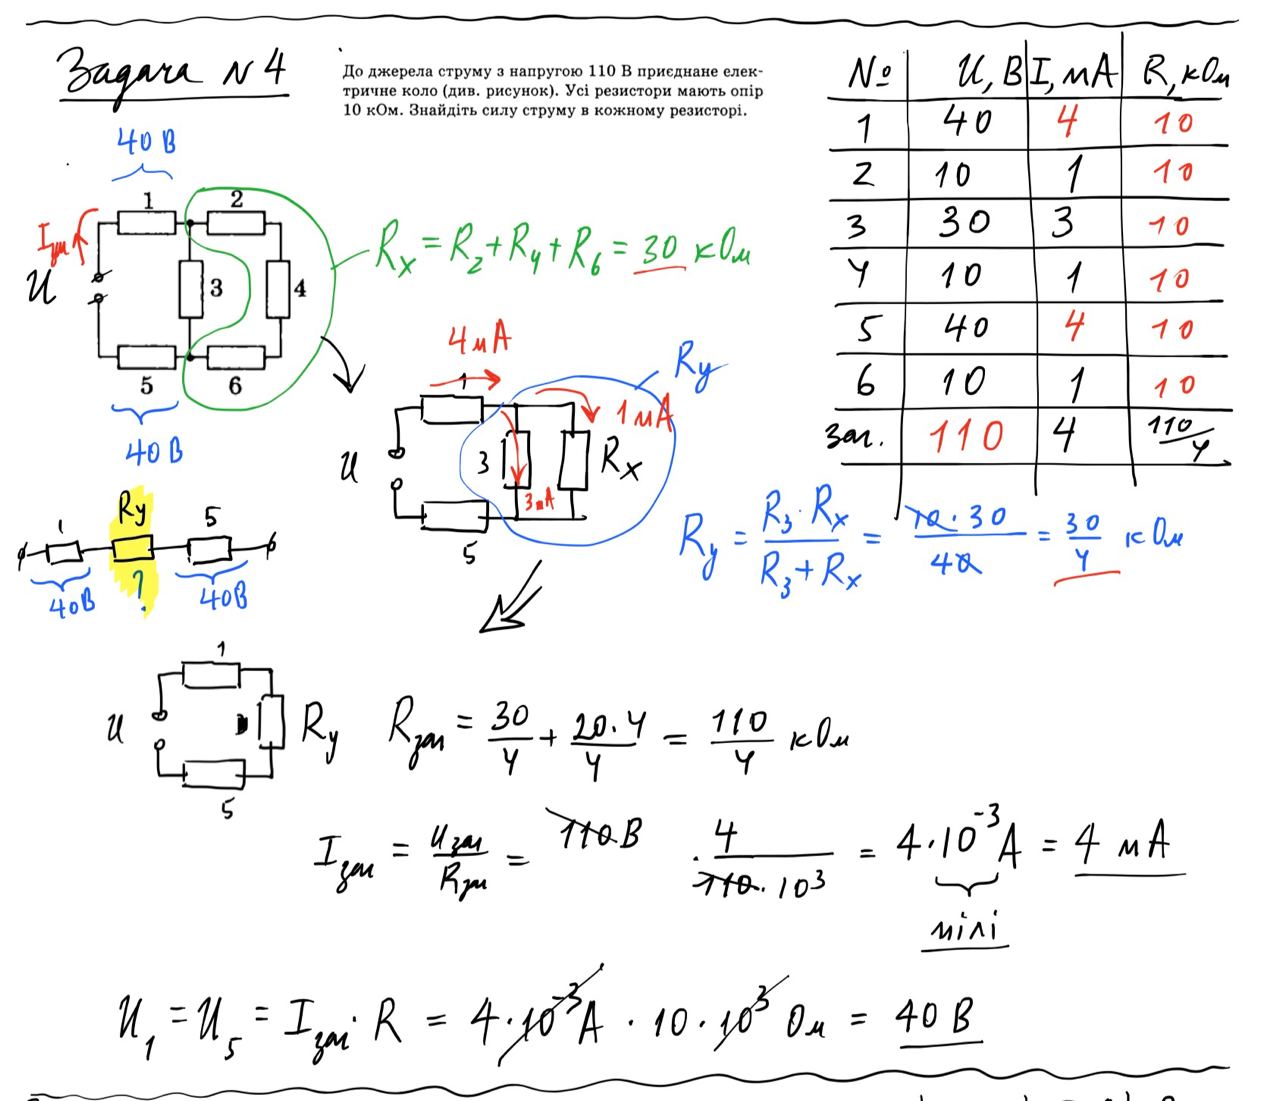 Задача N 4
До джерела струму з напругою 110 В приєднане елек-
тричне коло (див. рисунок). Усі резистори мають опір
10 кОм. Знайдіть силу струму в кожному резисторі.
№ U, В I, мА R, кОм
1 40 4 10
2 10 1 10
3 30 3 10
4 10 1 10
5 40 4 10
6 10 1 10
заг. 110 4 110/4
40 В
1 2
Iзаг
U 3 4
5 6
40 В
Rx = R2 + R4 + R6 = 30 кОм
4 мА
1
Ry
1 мА
U 3 Rx
3 мА
5
Ry = R3 · Rx / R3 + Rx = 10 · 30 / 40 = 30/4 кОм
1 Ry 5
40В ? 40В
1
U Ry
5
Rзаг = 30/4 + 20·4/4 = 110/4 кОм
Iзаг = Uзаг/Rзаг = 110 В · 4/110·10³ = 4·10⁻³ А = 4 мА
мілі
U1 = U5 = Iзаг · R = 4·10⁻³ А · 10·10³ Ом = 40 В